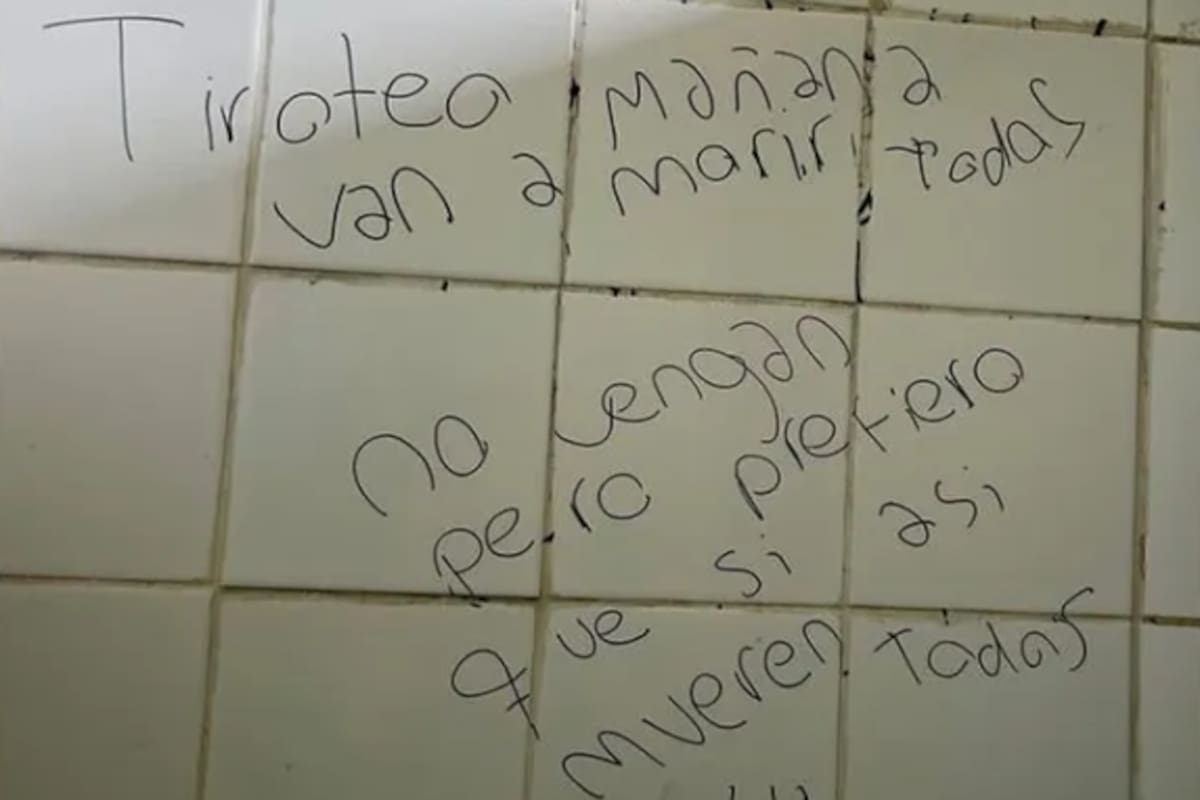 Tiroteo mañana
van a morir todas
no vengan
pero prefiero
que si asi
mueren todas